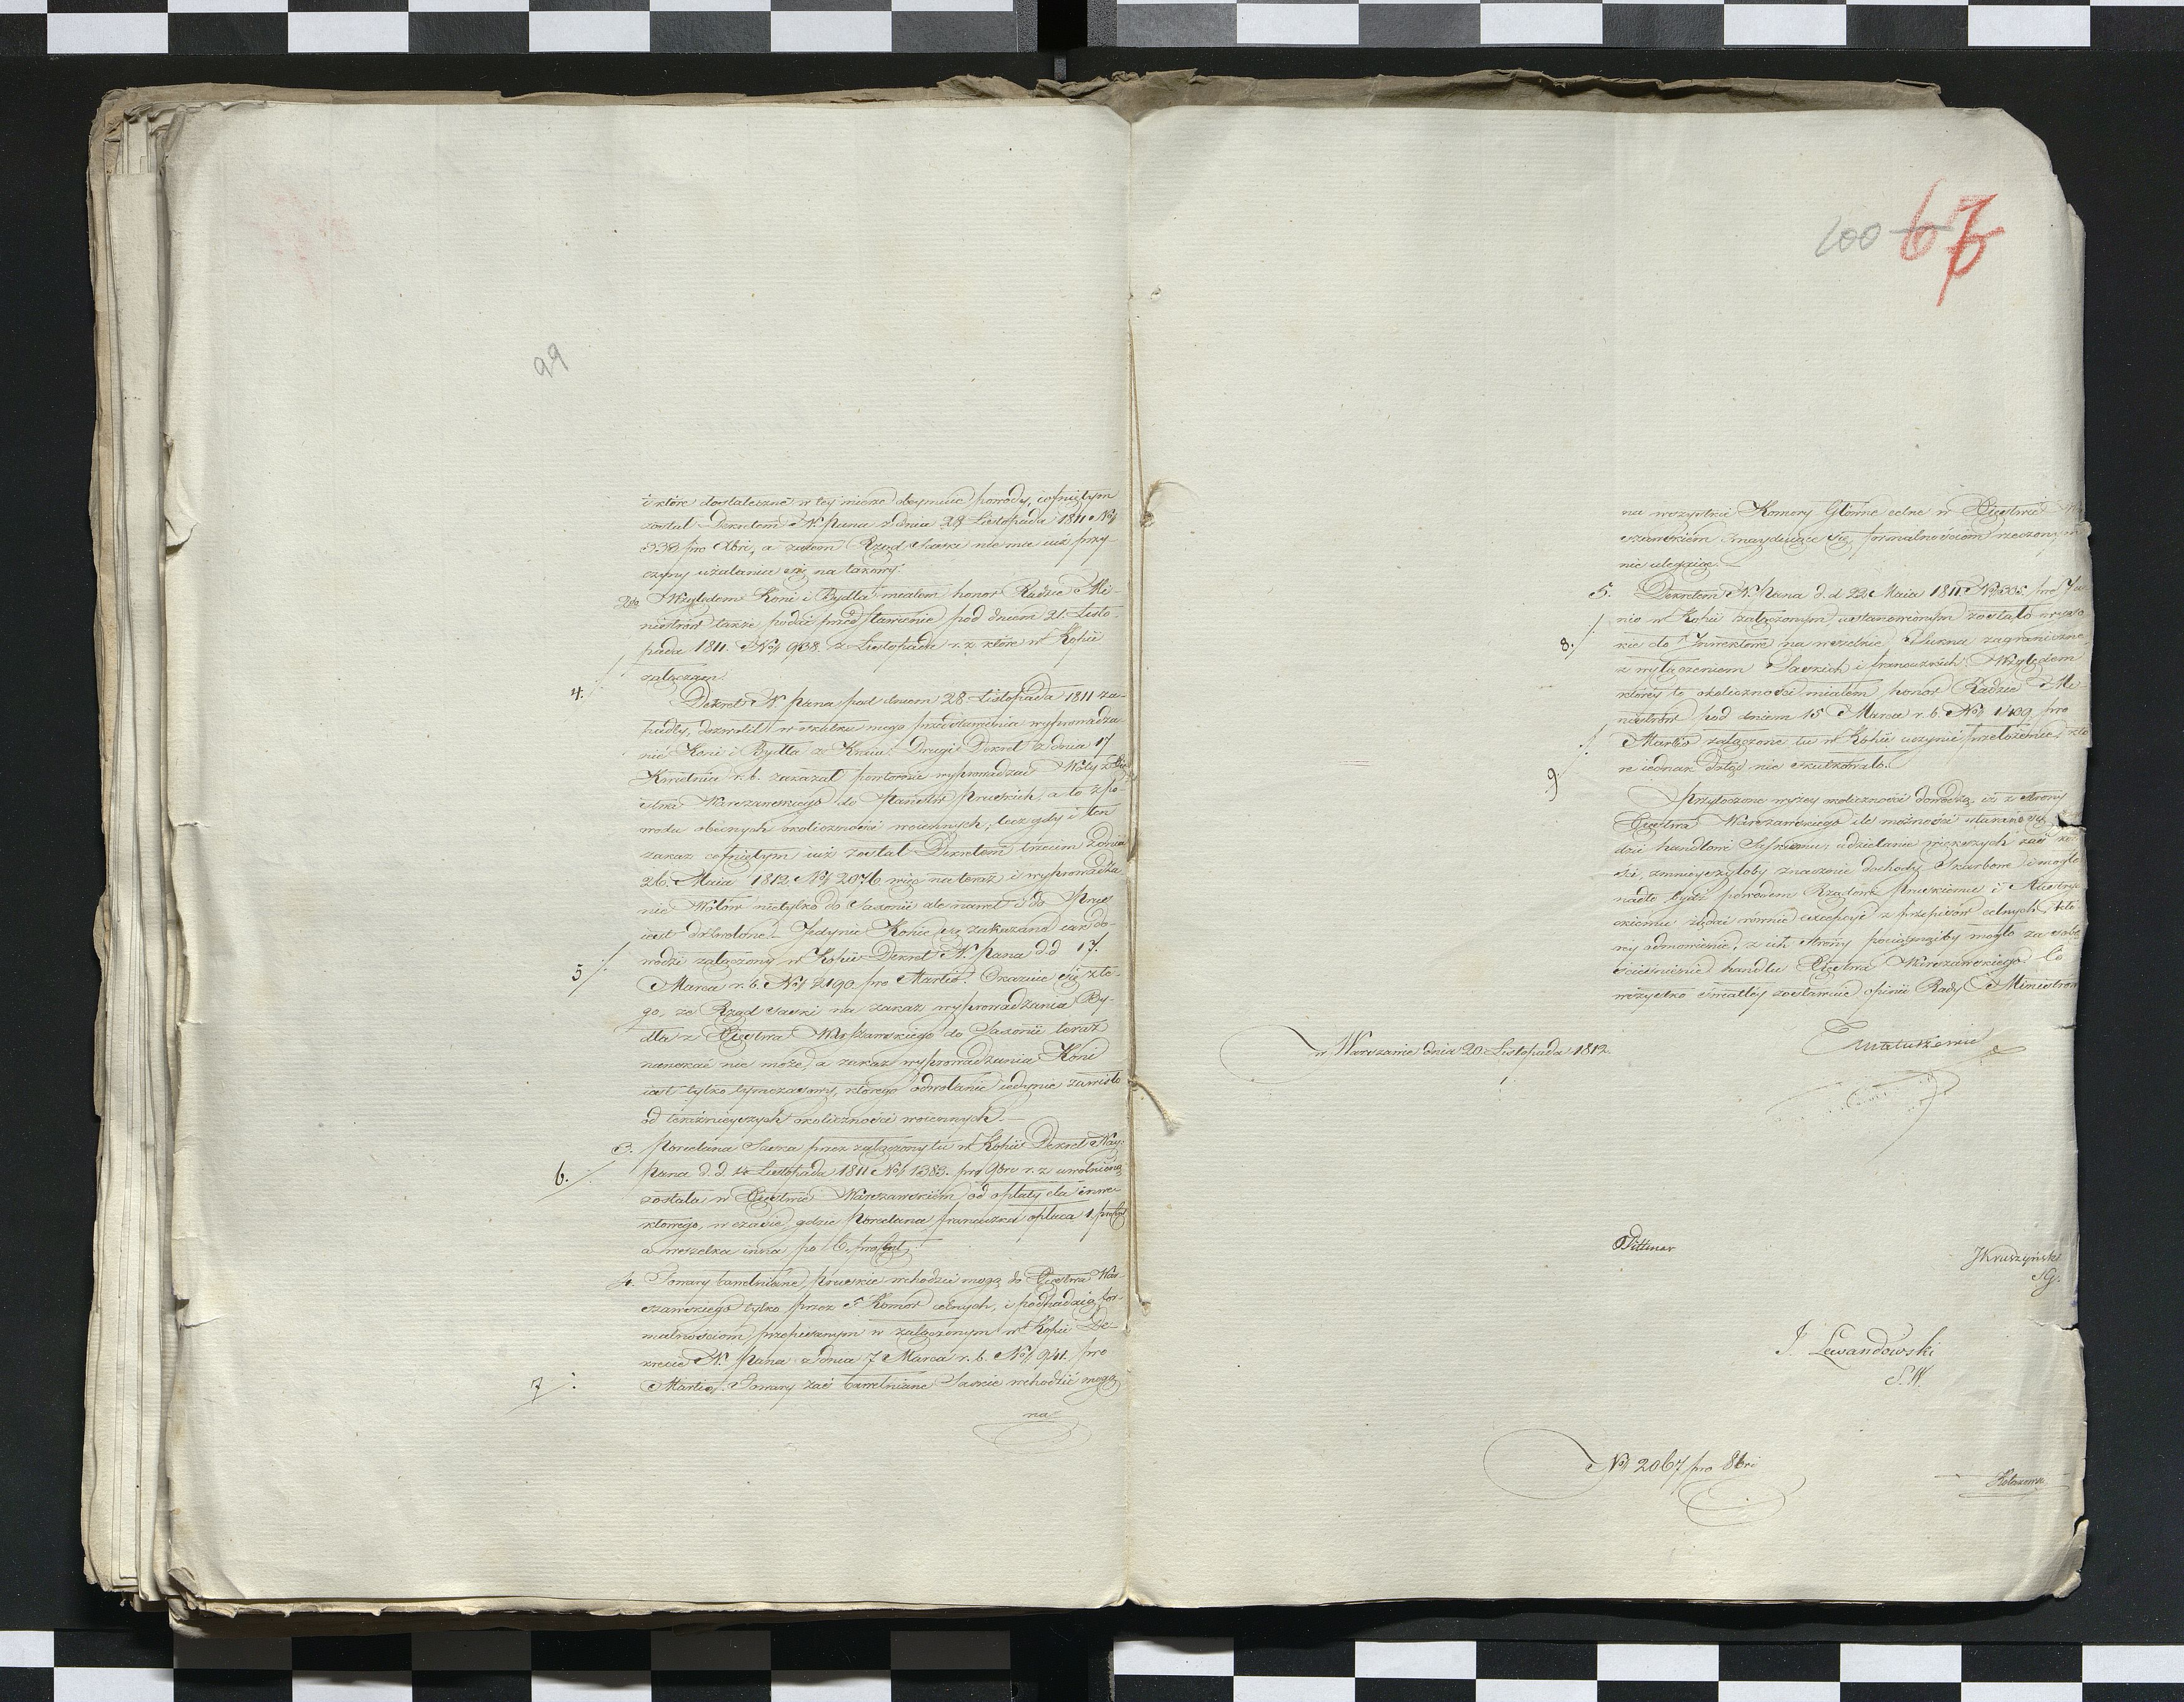 99
i które dostateczne w tey mierze obeymuie powody, cofniętym
został Dekretem N. Pana z dnia 28 Listopada 1811 No
338 pro Xbri, a zatem Rząd Saski niema iuż przy-
czyny użalania się na takowy.
2do Względem Koni i Bydła miałem honor Radzie Mi-
nistrów także podać przedstawienie pod dniem 21. Listo-
pada 1811. No 938. z Listopada r. z. które w Kopii
załączam.
4.
Dekret N. Pana pod dniem 28 Listopada 1811 za-
padły, dozwolił w skutku mego przedstawienia wyprowadza-
nie Koni i Bydła z Kraiu. Drugi Dekret z dnia 17
Kwietnia r. b. zakazał powtórnie wyprowadzać Woły z Xię-
stwa Warszawskiego do Państw Pruskich, a to z po-
wodu obecnych okoliczności woiennych; lecz gdy i ten
zakaz cofniętym iuż został Dekretem trzecim z dnia
26. Maia 1812 No 2076 więc na teraz i wyprowadza-
nie Wołów nietylko do Saxonii ale nawet i do Prus
iest dozwolone. Jedynie Konie są zakazane iak do-
wodzi załączony w Kopii Dekret N. Pana d. d. 17.
5
Marca r. b. No 2190 pro Martio. Okazuie się z te-
go, że Rząd Saski na zakaz wyprowadzania By-
dła z Xięstwa Warszawskiego do Saxonii teraz
narzekać nie może, a zakaz wyprowadzania Koni
iest tylko tymczasowy, którego odwołanie iedynie zawisło
od teraźnieyszych okoliczności woiennych.
3. Porcelana Saska przez załączony tu w Kopii Dekret Nay:
6.
Pana d. d. 14 Listopada 1811 No 1383. pro 9bri r. z. uwolnioną
została w Xięstwie Warszawskiém od opłaty cła inwe-
ktowego, w czasie, gdzie Porcelana francuzka opłaca 1. proCent
a wszelka inna po 6. proCent.
4. Towary bawełniane Pruskie wchodzić mogą do Xięstwa War-
szawskiego tylko przez 5 Komor celnych, i podpadaią for-
malnościom przepisanym w załączonym w Kopii De-
krecie N. Pana z dnia 7 Marca r. b. No 941. pro
7
Martio. Towary zaś bawełniane Saskie wchodzić mogą
na
100 67
na wszystkie Komory Główne celne w Xięstwie
szawskiém znayduiące się, formalnościom rzeczonym
nie ulegaiąc.
5. Dekretem N. Pana d. d. 22. Maia 1811. No 335. pro
nio w Kopii załączonym ustanowionym zostało
8.
kie cło Inwektowe na wszelkie Sukna zagraniczne
z wyłączeniem Saskich i francuzkich. Względem
któréy to okoliczności miałem honor Radzie Mi-
nistrów pod dniem 15 Marca r. b. No 1439 pro
Martio załączone tu w Kopii uczynić przełożenie, któ-
9.
re iednak dotąd nie skutkowało.
Przytoczone wyżey okoliczności dowodzą, iż z strony
Xięstwa Warszawskiego ile możności starano się
dzić handlowi Saskiemu; udzielanie większych zaś
ści, zmnieyszyłoby znacznie dochody Skarbowe i mogło
nadto bydź powodem Rządowi Pruskiemu i Austrya-
ckiemu żądać równie excepcyi z przepisów celnych, któ-
rey odmowienie, z ich strony pociągnąćby mogło za sobą
ścieśnienie handlu Xięstwa Warszawskiego. Co
wszystko światłéy zostawuię opinii Rady Ministrów
w Warszawie dnia 20. Listopada 1812.
Matuszewic
Dittmer
JKruszyński
SG.
J. Lewandowski
S. W.
No 2067 pro 8bri